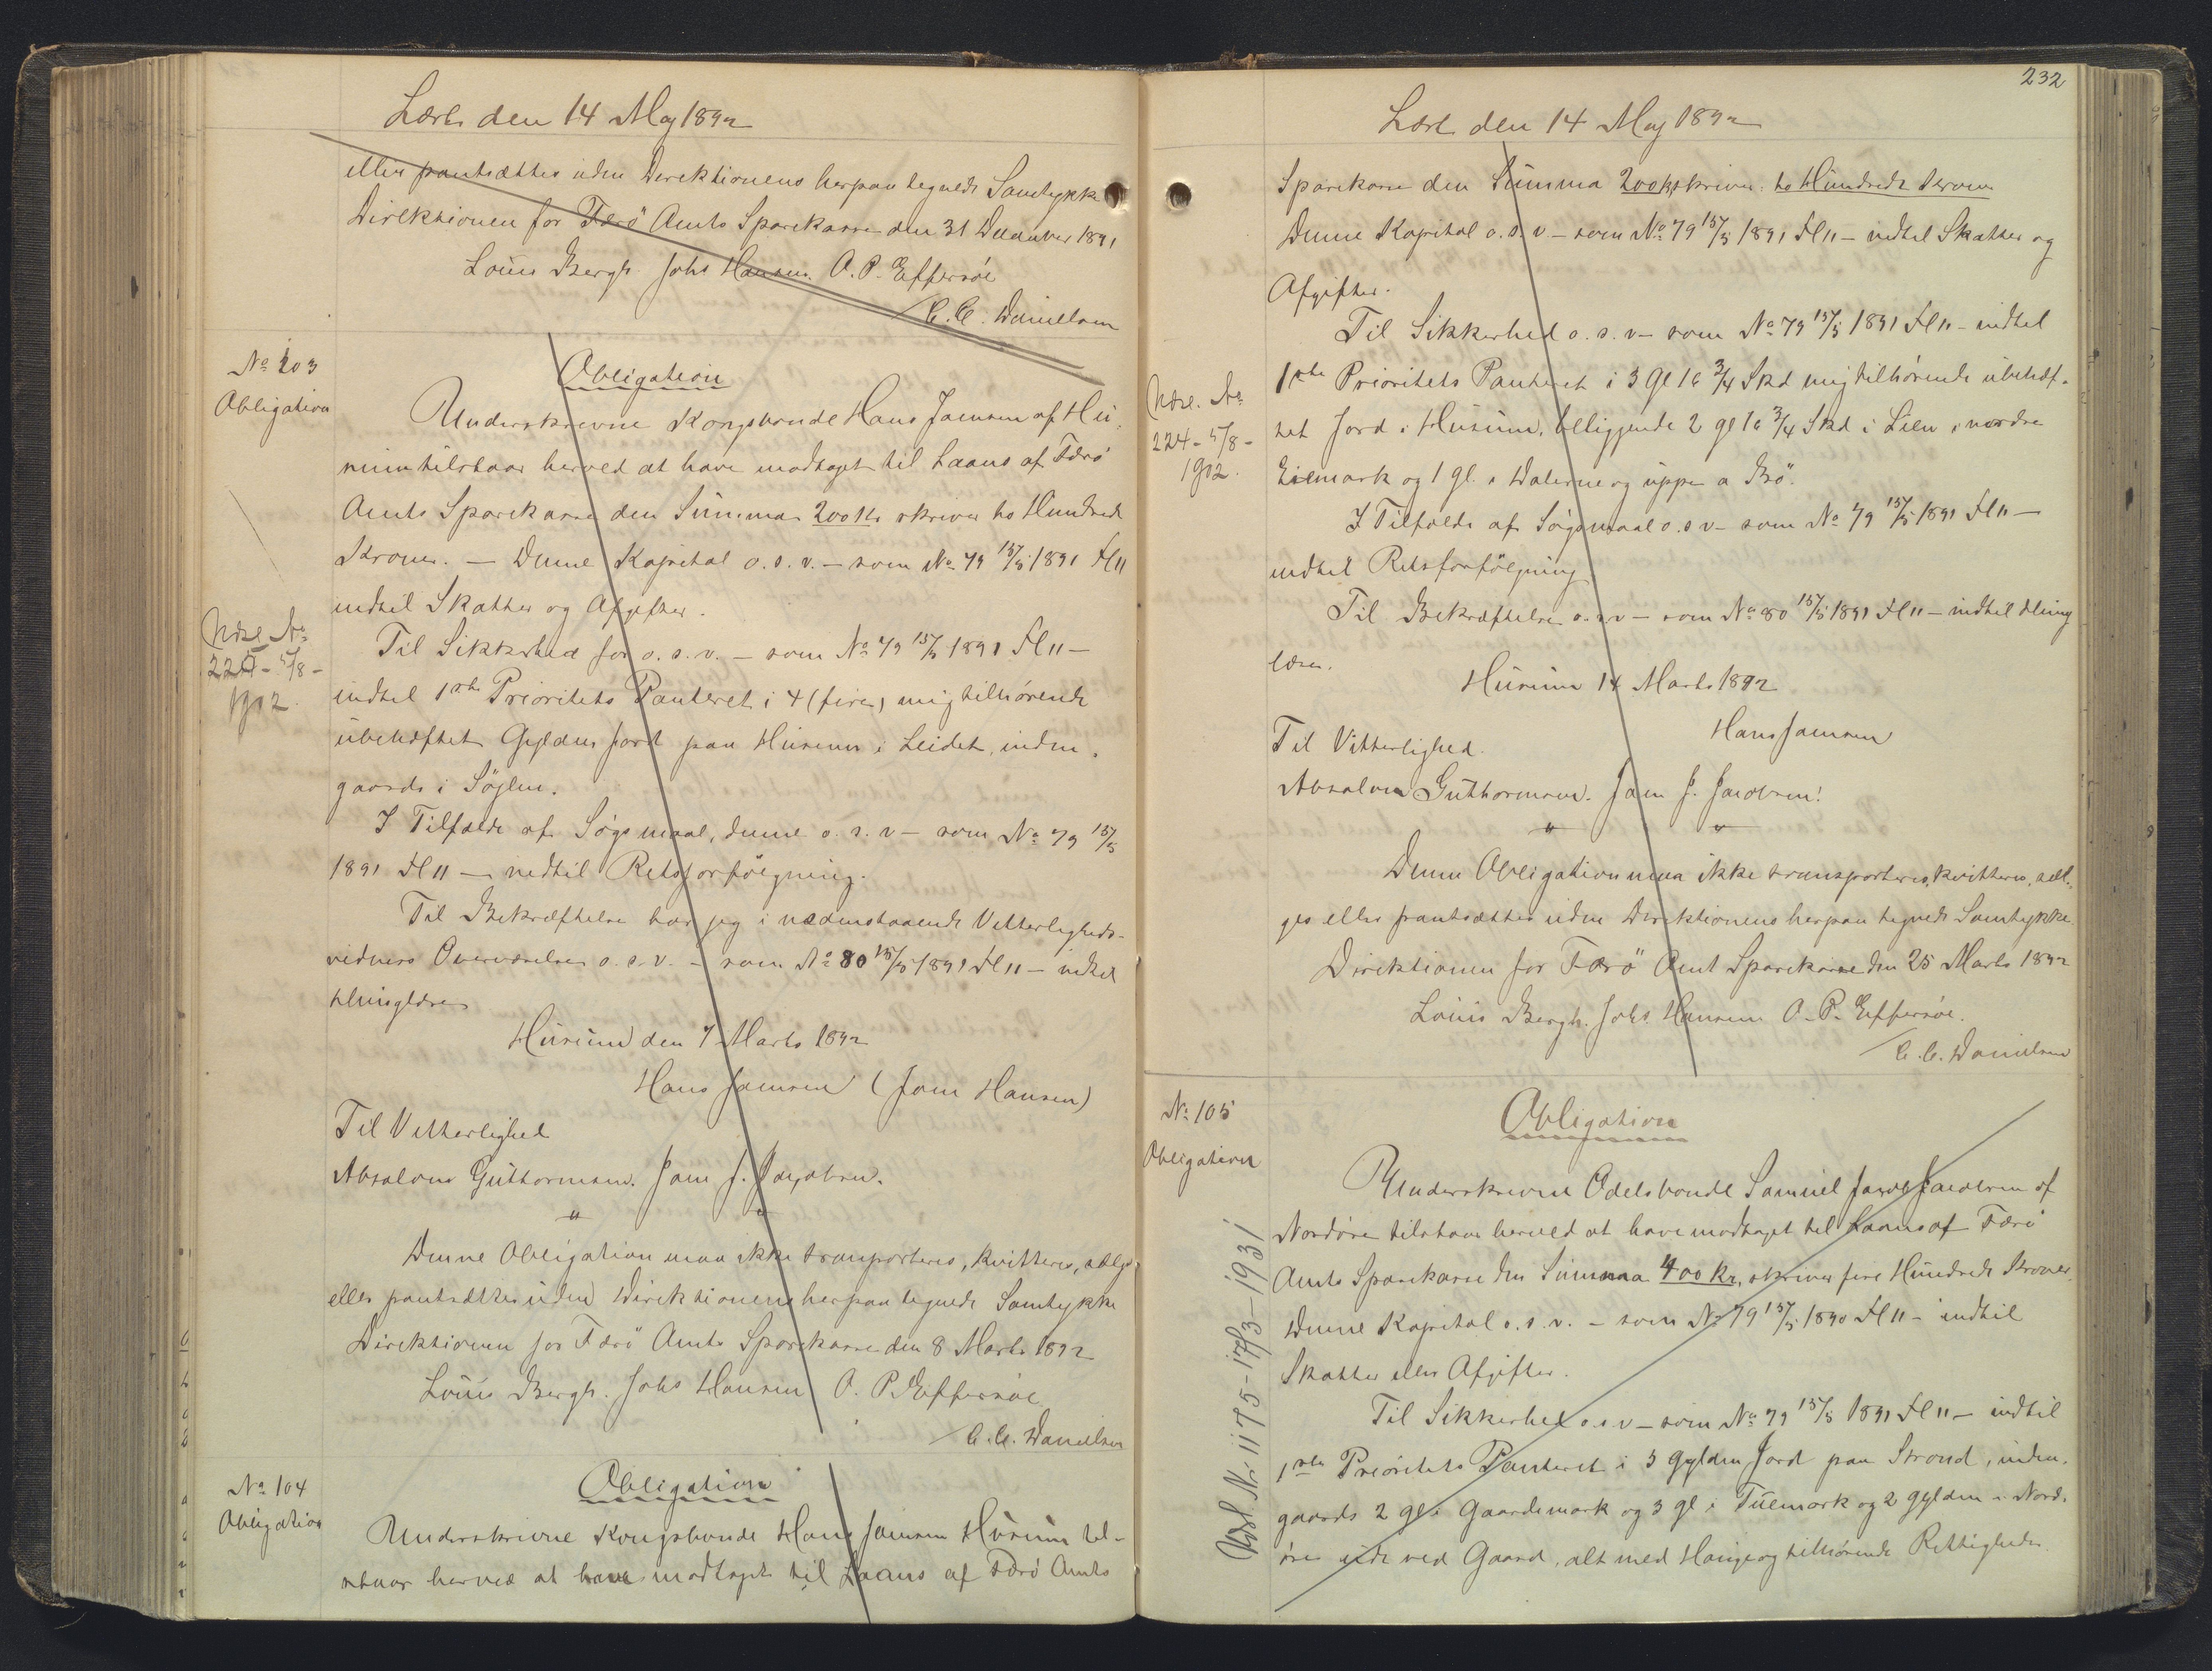 Læst den 14 Maj 1892
eller pantsættes uden Direktionens herpaa tegnede Samtykke
Direktionen for Færö Amts Sparekasse den 31 December 1891
Louis Bergh. Johs Hansen. O. P. Effersöe
/C. C. Danielsen
No 103
Obligation
Obligation
Underskrevne Kongsbonde Hans Joensen af Hu-
sum tilstaar herved at have modtaget til Laans af Færö
Amts Sparekasse den Summa 200 Kr skriver to Hundrede
Kroner. — Denne Kapital o.s.v. — som No 79 15/5 1891 Fl 11
indtil Skatter og Afgifter.
Til Sikkerhed for o.s.v. — som No 79 15/5 1891 Fl 11 —
indtil 1ste Prioritets Panteret i 4 (fire) mig tilhörende
ubehæftet Gylden Jord paa Husum i Leidet, inden-
gaards i Söjlen.
Udsl. No
224 - 5/8 -
1912.
I Tilfælde af Sögsmaal, denne o.s.v — som No 79 15/5
1891 Fl 11 — indtil Retsforfölgning.
Til Bekræftelse har jeg i nedenstaaende Vitterligheds-
vidners Overværelse o.s.v. — som No 80 15/5 1891 Fl 11 — indtil
thinglæses
Husum den 7 Marts 1892
Hans Joensen (Joen Hansen)
Til Vitterlighed
Absalon Guthormsen. Joen J. Jacobsen.
" "
Denne Obligation maa ikke transporteres, kvitteres, sælges
eller pantsættes uden Direktionens herpaa tegnede Samtykke
Direktionen for Færö Amts Sparekasse den 8 Marts 1892
Louis Bergh. Johs Hansen O. P. Effersöe
/C. C. Danielsen
No 104
Obligation
Obligation
Underskrevne Kongsbonde Hans Joensen Husum til-
staar herved at have modtaget til Laans af Færö Amts
232
Læst den 14 Maj 1892
Sparekasse den Summa 200 Kr skriver: to Hundrede Kroner
Denne Kapital o.s.v — som No 79 15/5 1891 Fl 11 — indtil Skatter og
Afgifter.
Til Sikkerhed o.s.v — som No 79 15/5 1891 Fl 11 — indtil
1ste Prioritets Panteret i 3 Gl 16 3/4 Skd mig tilhörende ubehæf-
tet Jord i Husum, beliggende 2 gl 16 3/4 Skd i Lien, i nordre
mark og 1 gl. i Dalerne og uppe a Brö.
Udsl. No
224 - 5/8 -
1912.
I Tilfælde af Sögsmaal o.s.v — som No 79 15/5 1891 Fl 11 —
indtil Retsforfölgning
Til Bekræftelse o.s.v — som No 80 15/5 1891 Fl 11 — indtil thing
læses.
Husum 14 Marts 1892
Hans Joensen
Til Vitterlighed.
Absalon Guthormsen. Joen J. Jacobsen.
" "
Denne Obligation maa ikke transporteres, kvitteres, sæl-
ges eller pantsættes uden Direktionens herpaa tegnede Samtykke
Direktionen for Færö Amt Sparekasse den 25 Marts 1892
Louis Bergh. Johs. Hansen O. P. Effersöe.
/C. C. Danielsen
No 105
Obligation
Obligation
Underskrevne Odelsbonde Samuel Jacob Jacobsen af
Nordöre tilstaar herved at have modtaget til Laans af Færö
Amts Sparekasse den Summa 400 Kr, skriver fire Hundrede Kroner,
Denne Kapital o.s.v. — som No 79 15/5 1890 Fl 11 — indtil
Skatter eller Afgifter.
Til Sikkerhed o.s.v — som No 79 15/5 1891 Fl 11 — indtil
1ste Prioritets Panteret i 3 gylden Jord paa Strond, inden-
gaards 2 gl i Gaardsmark og 3 gl i Tuemark og 2 gylden i Nord-
öre ude ved Gaard, alt med Hauge og tilhörende Rettigheder.
Udsl Nr. 1175 - 17/3 - 1931